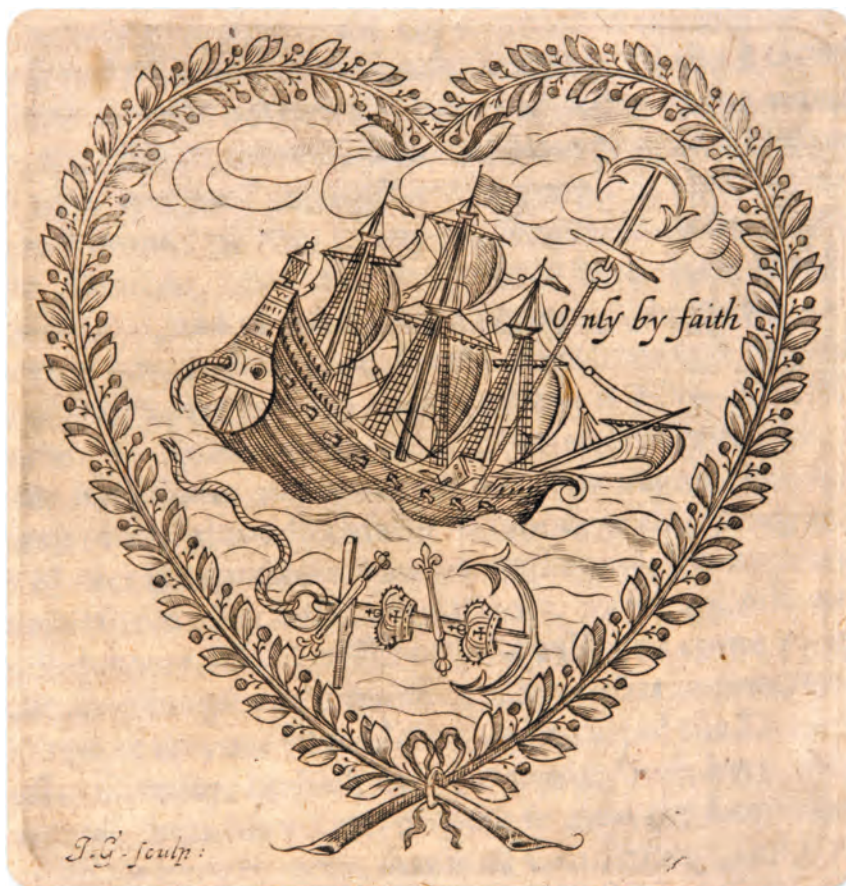 Only by faith
J. G. sculp: